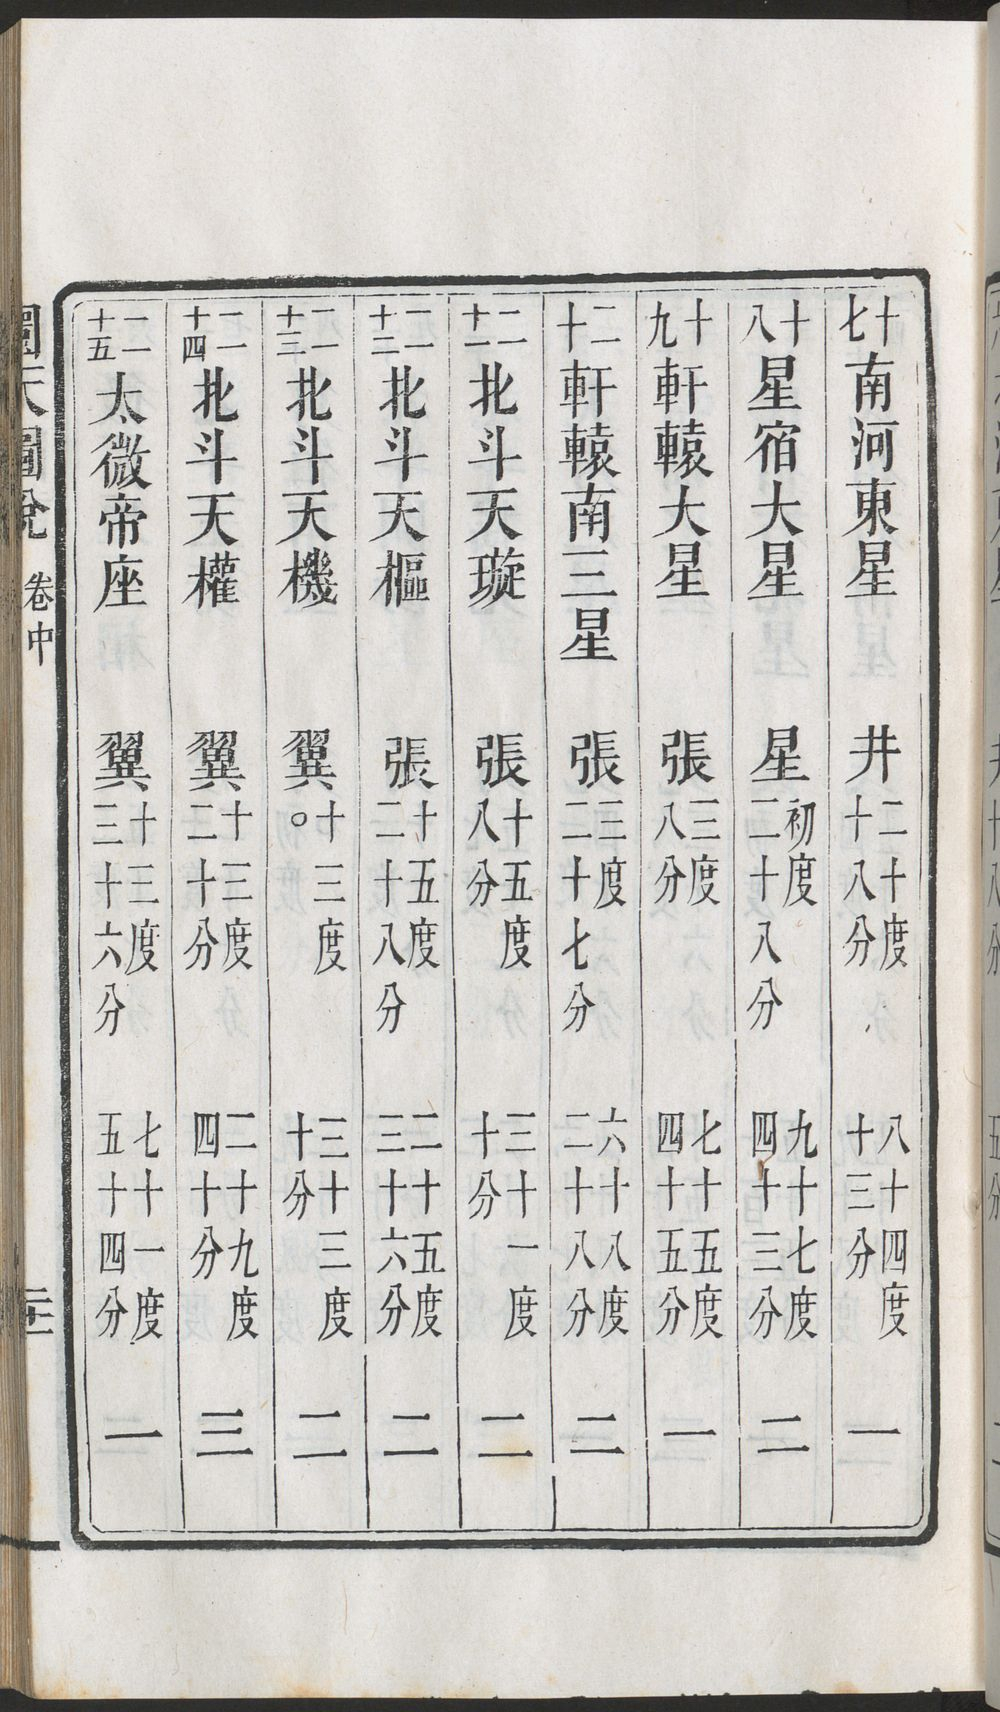 十七南河東星 井二十度十八分 八十四度十三分 一
十八星宿大星 星初度二十八分 九十七度四十三分 二
十九軒轅大星 張三度八分 七十五度四十五分 一
二十軒轅南三星 張三度二十七分 六十八度二十八分 二
二十一北斗天璇 張十五度八分 三十一度十分 二
二十二北斗天樞 張十五度二十八分 二十五度三十六分 二
二十三北斗天機 翼十三度〇 三十三度十分 二
二十四北斗天權 翼十三度二十分 二十九度四十分 三
二十五太微帝座 翼十三度三十六分 七十一度五十四分 一
圜天圖說 卷中